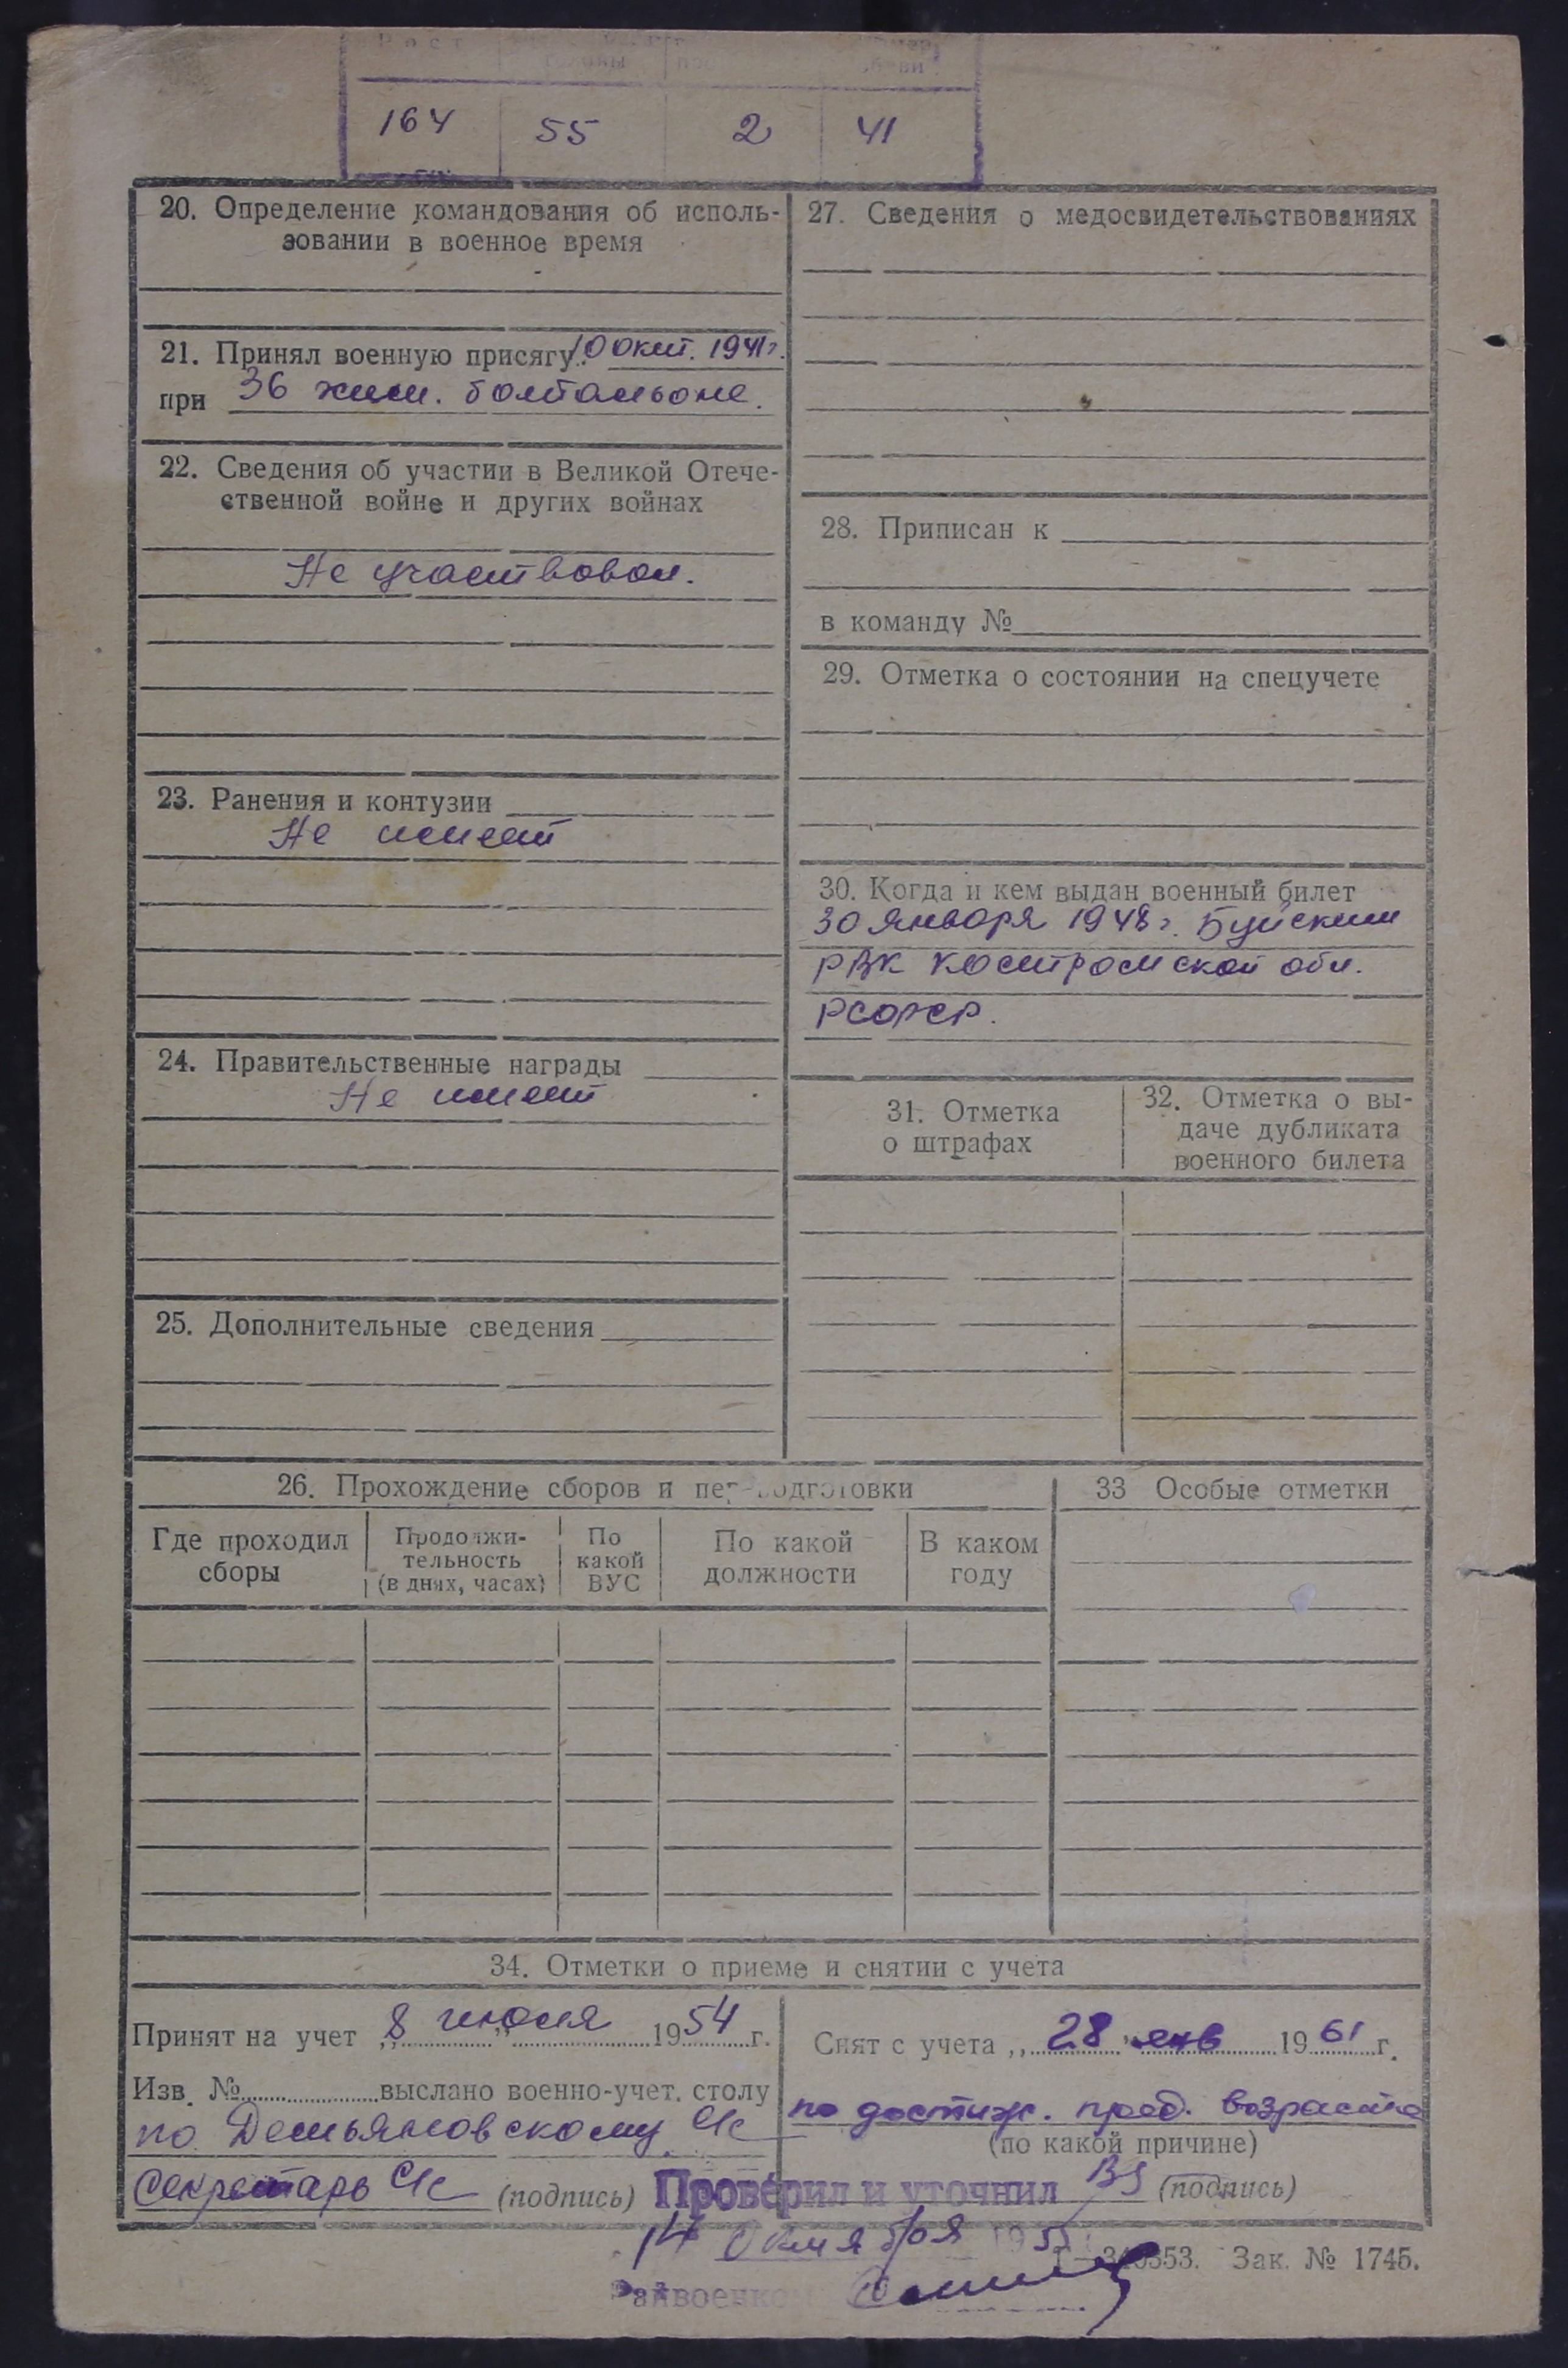 Рост
164 55 2 41
20. Определение командования об исполь-
зовании в военное время
21. Принял военную присягу 10 окт. 1941г.
при 36 хим. баттальоне.
22. Сведения об участии в Великой Отече-
ственной войне и других войнах
Не участвовал.
23. Ранения и контузии
Не имеет
24. Правительственные награды
Не имеет
25. Дополнительные сведения
27. Сведения о медосвидетельствованиях
28. Приписан к
в команду №
29. Отметка о состоянии на спецучете
30. Когда и кем выдан военный билет
30 января 1948г. Буйским
РВК Костромской обл.
РСФСР.
31. Отметка
о штрафах
32. Отметка о вы-
даче дубликата
военного билета
26. Прохождение сборов и переподготовки
Где проходил
сборы
Продолжи-
тельность
(в днях, часах)
По
какой
ВУС
По какой
должности
В каком
году
33 Особые отметки
34. Отметки о приеме и снятии с учета
Принят на учет „8" июля 1954 г.
Изв. № выслано военно-учет. столу
по Демьяновскому с/с
Секретарь с/с (подпись)
Снят с учета „28" янв 1961 г.
по достиж. пред. возраста
(по какой причине)
(подпись)
Проверил и уточнил
14 октября 195
Райвоенком
Зак. № 1745.